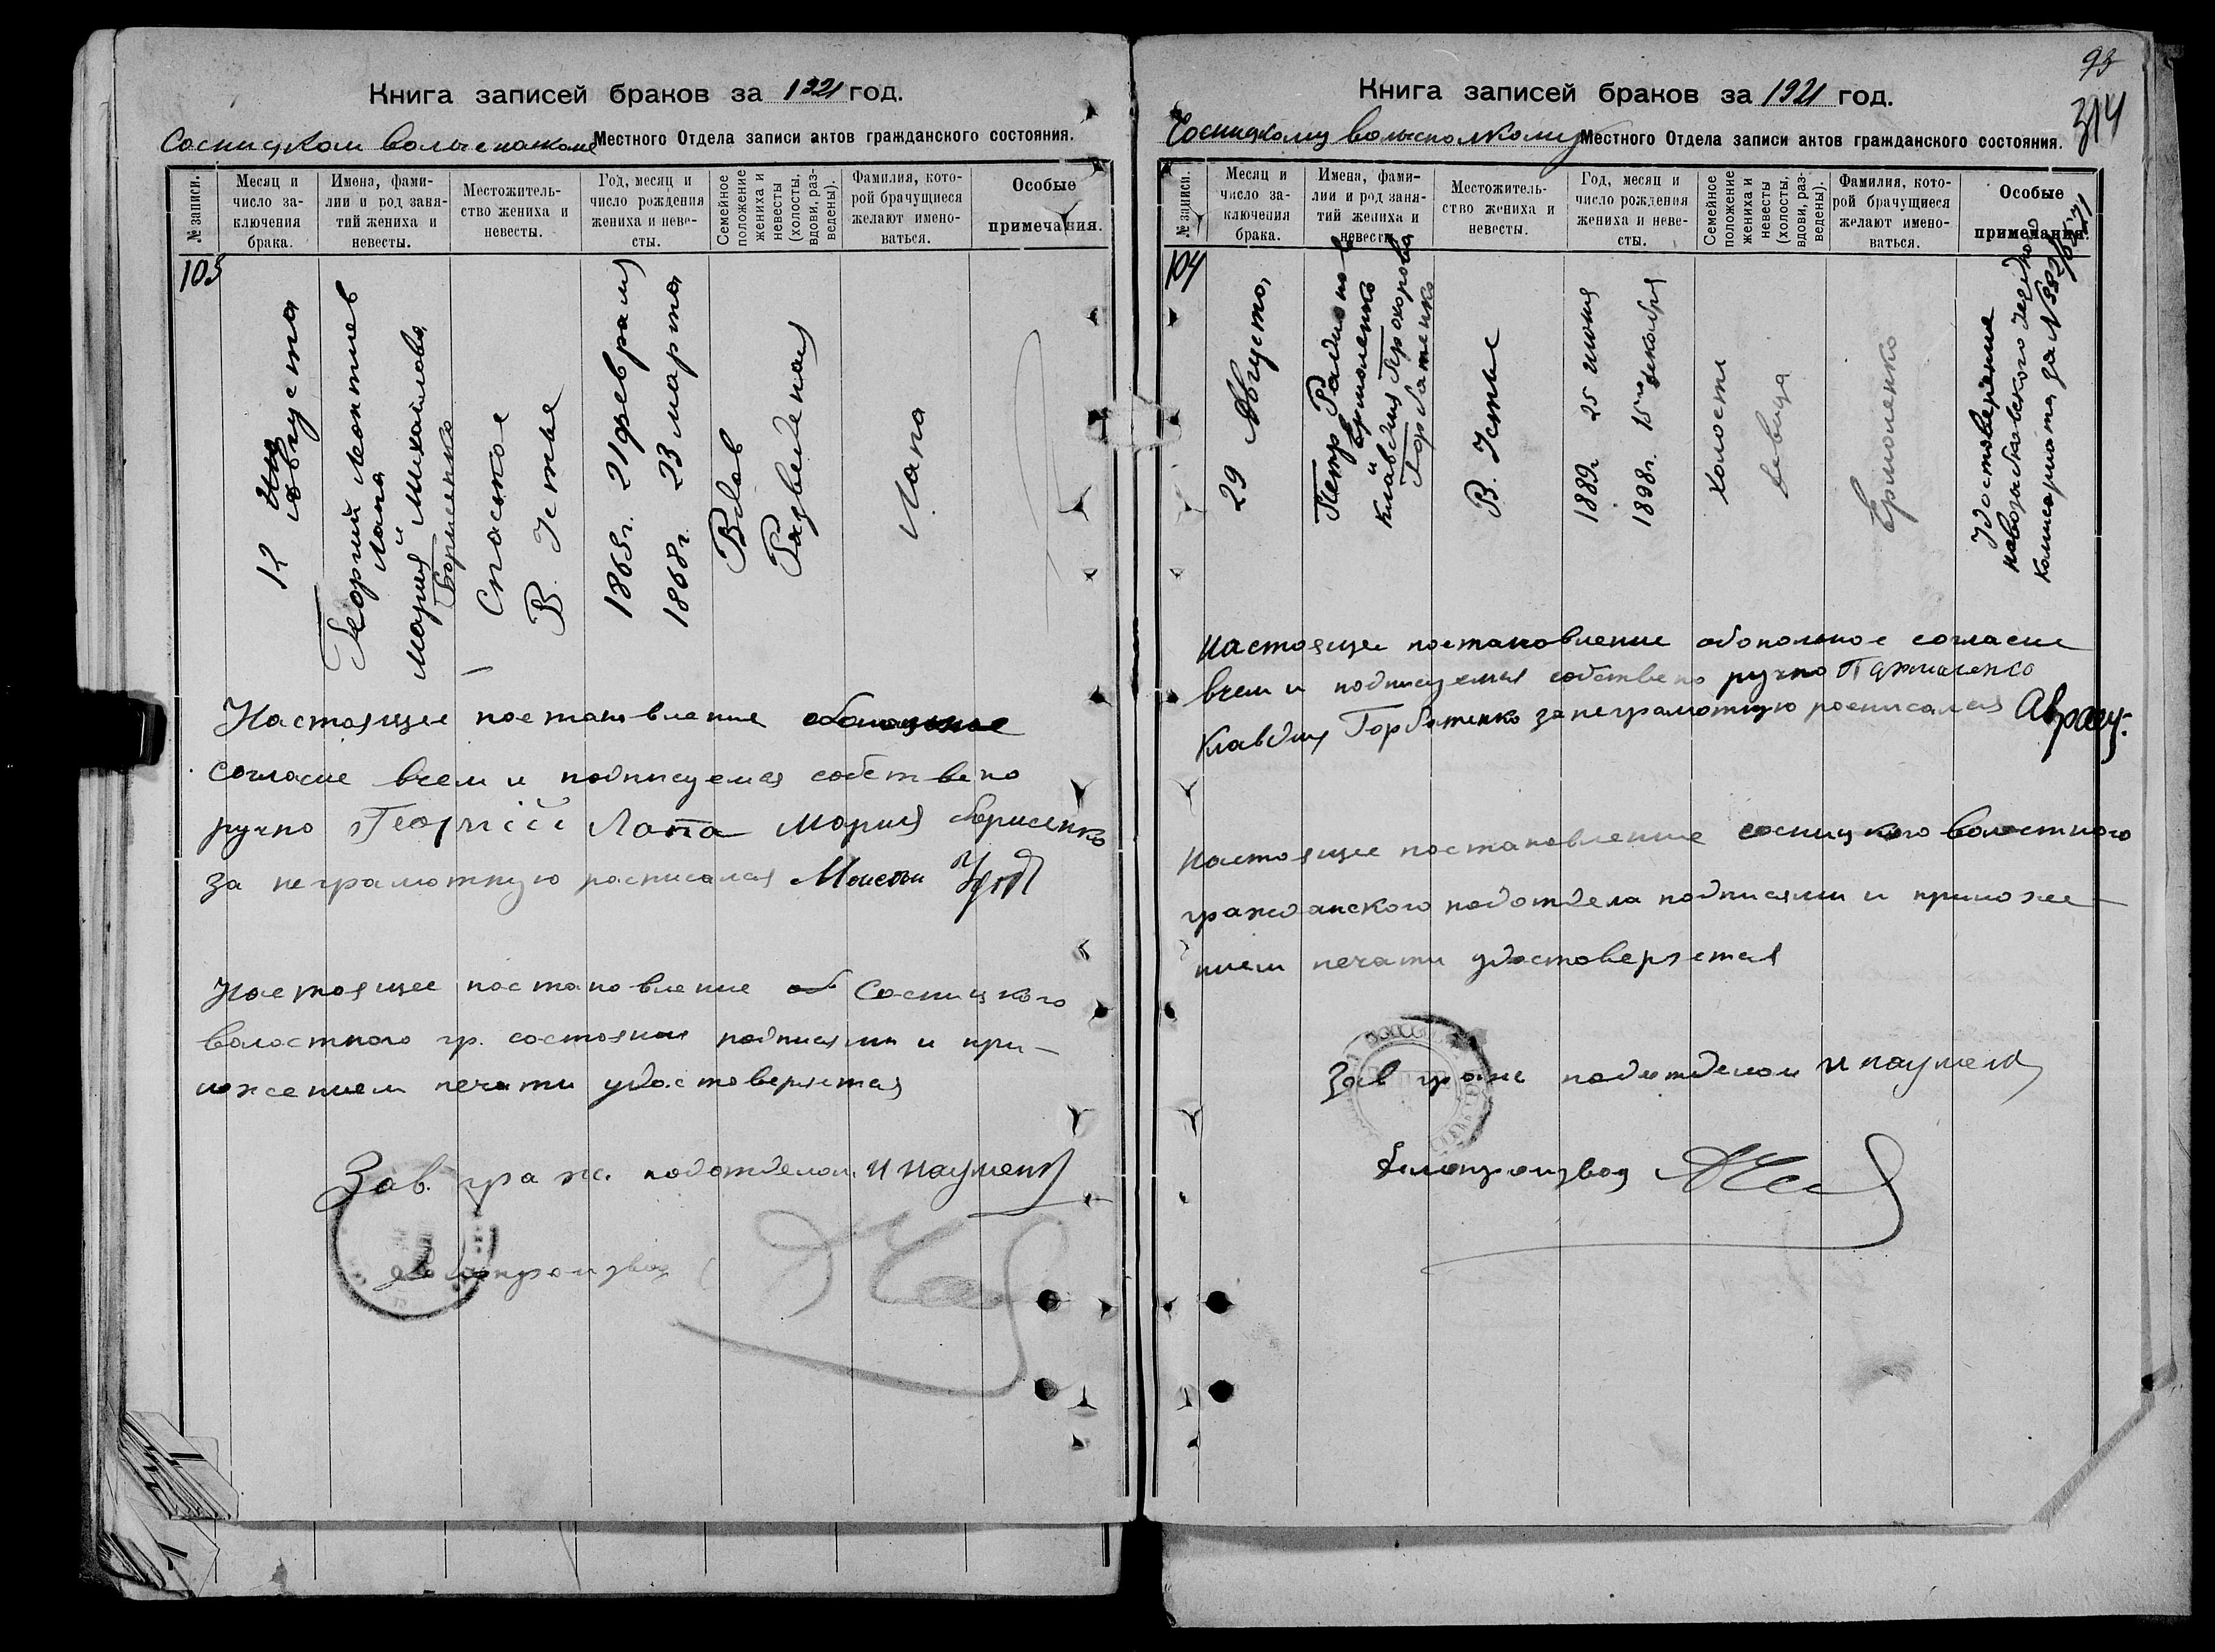 Книга записей браков за 1921 год.
Сосницком Местного Отдела записи актов гражданского состояния.
№ записи.
Месяц и число заключения брака.
Имена, фамилии и род занятий жениха и невесты.
Местожительство жениха и невесты.
Год, месяц и число рождения жениха и невесты.
Семейное положение жениха и невесты (холосты, вдовы, разведены).
Фамилия, которой брачущиеся желают именоваться.
Особые примечания.
103
12 августа
Георгий Леонтиев
Лапа
и
Мария Михайлова
Борисенко
Спаское
В. Устье
1868г. 21 февраля
1868г. 23 марта
Вдов
Разведеная
Лапа
Настоящее постановление
согласие всем и подписуемся собствено
ручно Георгій Лапа Мария Борисенко
за неграмотную расписался
Настоящее постановление Сосницкого
волостного гр. состояния подписями и при-
ложением печати удостоверяется
Зав. граж. подотделом И Науменко
Делопроизвод
93
314
Книга записей браков за 1921 год.
Сосницкому волисполкому Местного Отдела записи актов гражданского состояния.
№ записи.
Месяц и число заключения брака.
Имена, фамилии и род занятий жениха и невесты.
Местожительство жениха и невесты.
Год, месяц и число рождения жениха и невесты.
Семейное положение жениха и невесты (холосты, вдовы, разведены).
Фамилия, которой брачущиеся желают именоваться.
Особые примечания.
104
29 Августа
Петр Радионов
Ермоленко
и
Клавдия Прохорова
Горбатенко
В. Устье
1889г. 25 июня
1898г. 15го декабря
Холост
девица
Ермоленко
Удостоверение
Комисариата за №
Настояще постановление обопольное согласие
всем и подписуемся собствено ручно
Клавдия Горбатенко за неграмотную росписался
Настоящее постановление сосницкого волостного
гражданского подотдела подписями и приложе-
нием печати удостоверяется
Зав граж подотделом И Науменко
Делопроизвод